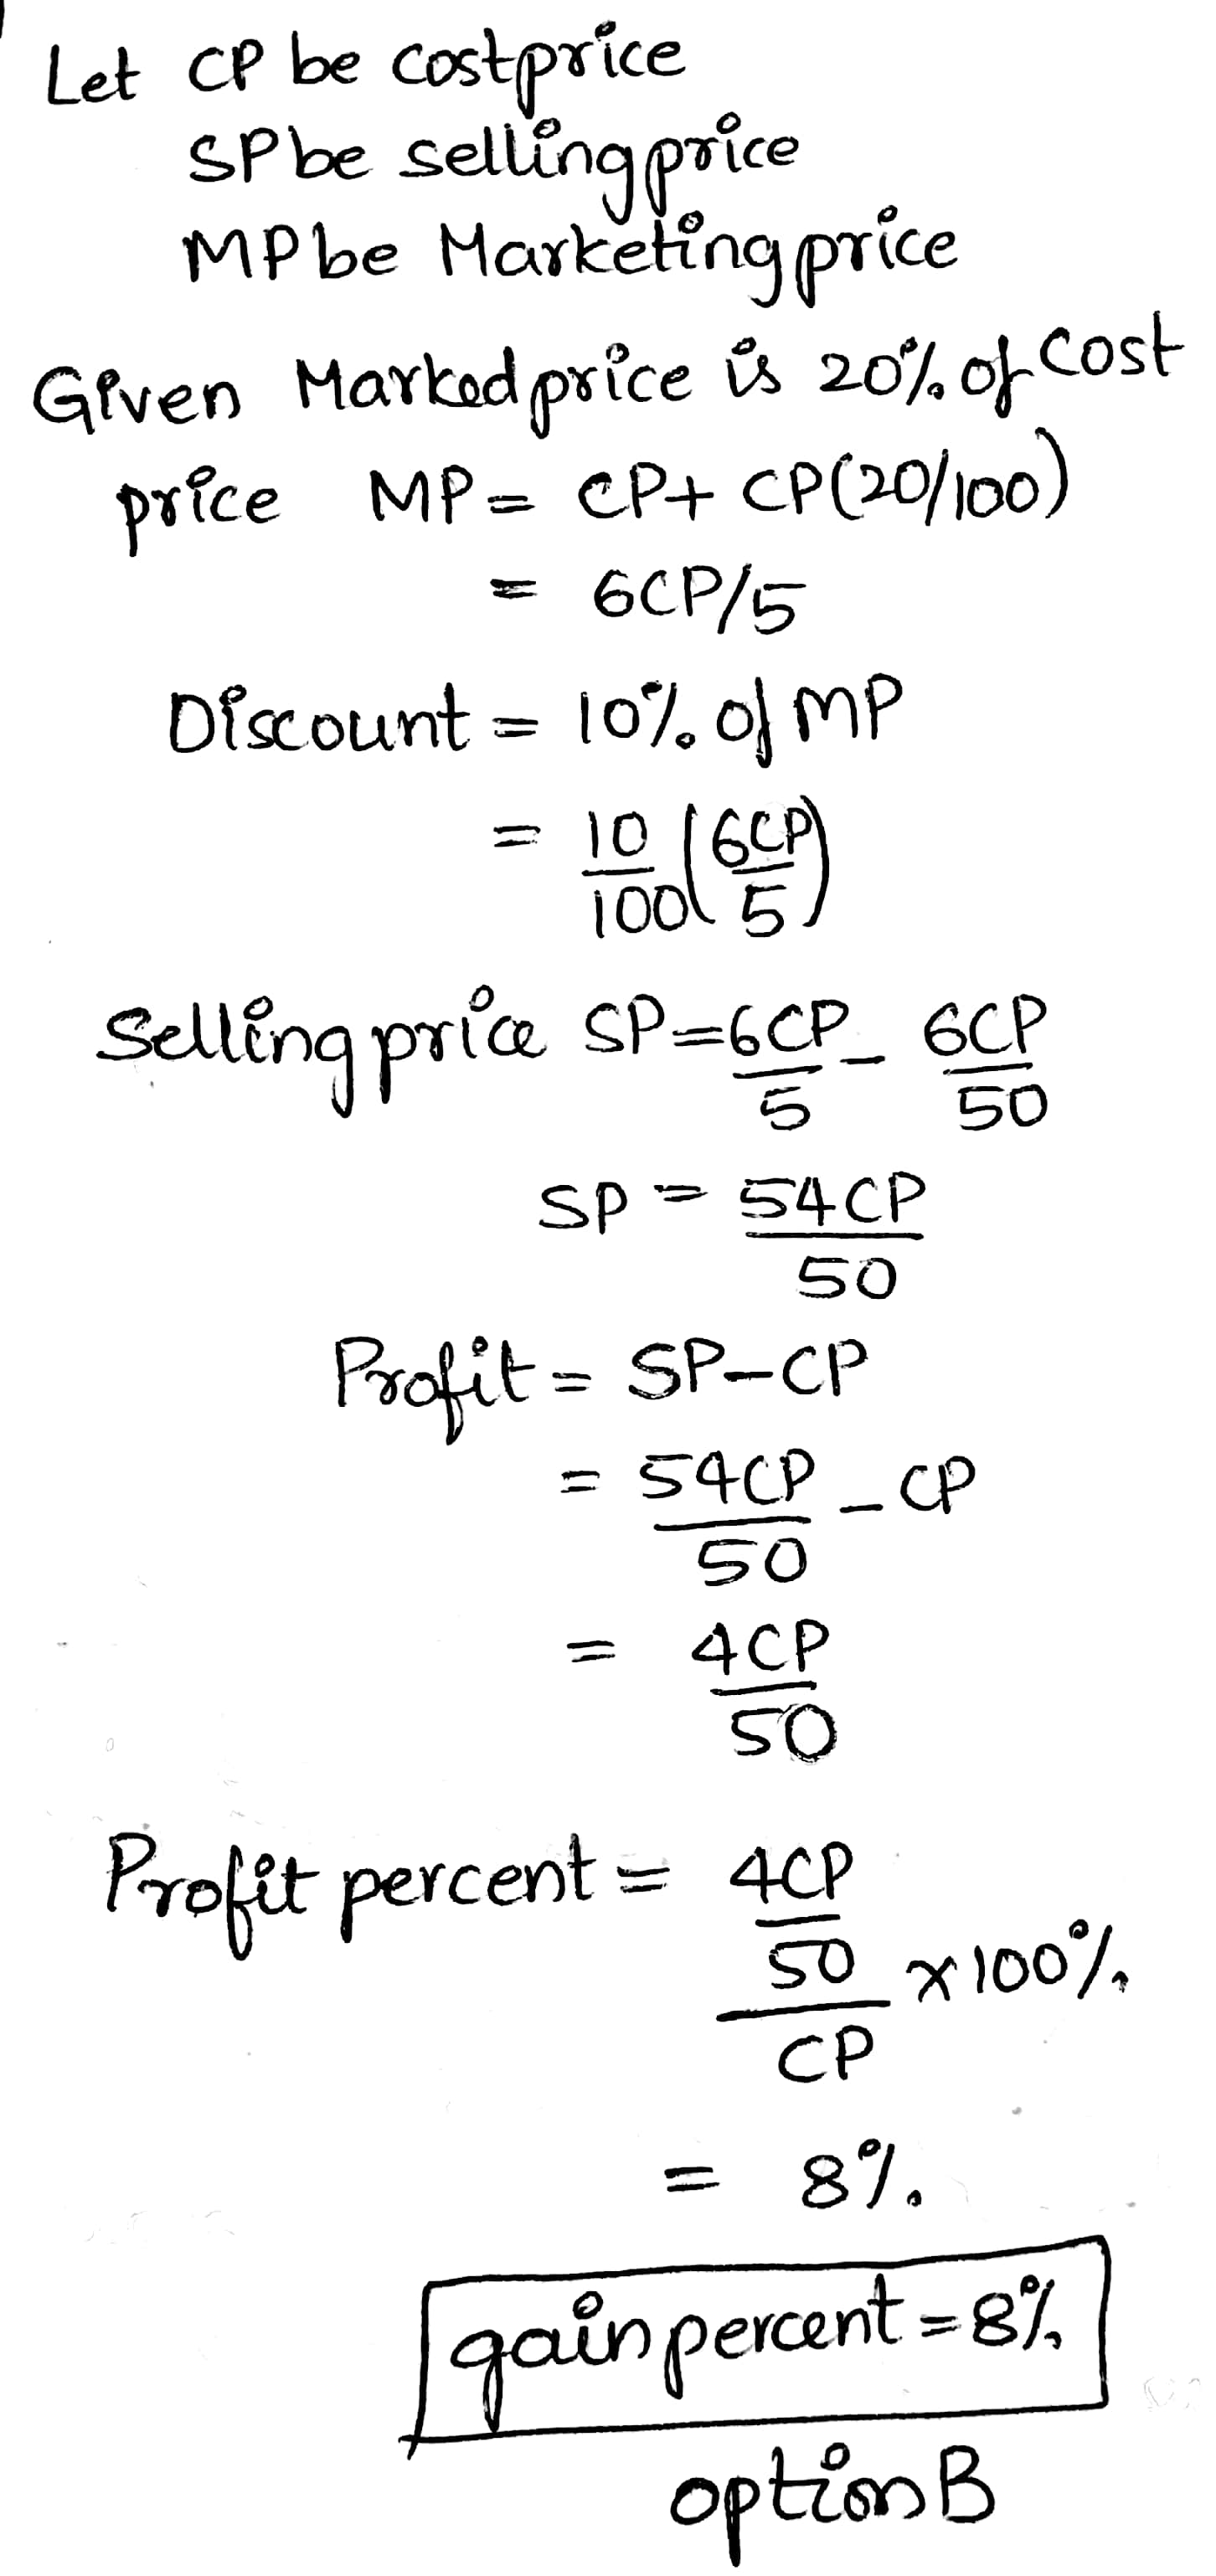 Let CP be costprice
SP be selling price
MP be Marketing price
Given Marked price is 20% of cost
price MP = CP + CP(20/100)
= 6CP/5
Discount = 10% of MP
= 10/100 (6CP/5)
Selling price SP = 6CP/5 - 6CP/50
SP = 54CP/50
Profit = SP - CP
= 54CP/50 - CP
= 4CP/50
Profit percent = 4CP/50/CP x 100%
= 8%
gain percent = 8%
option B